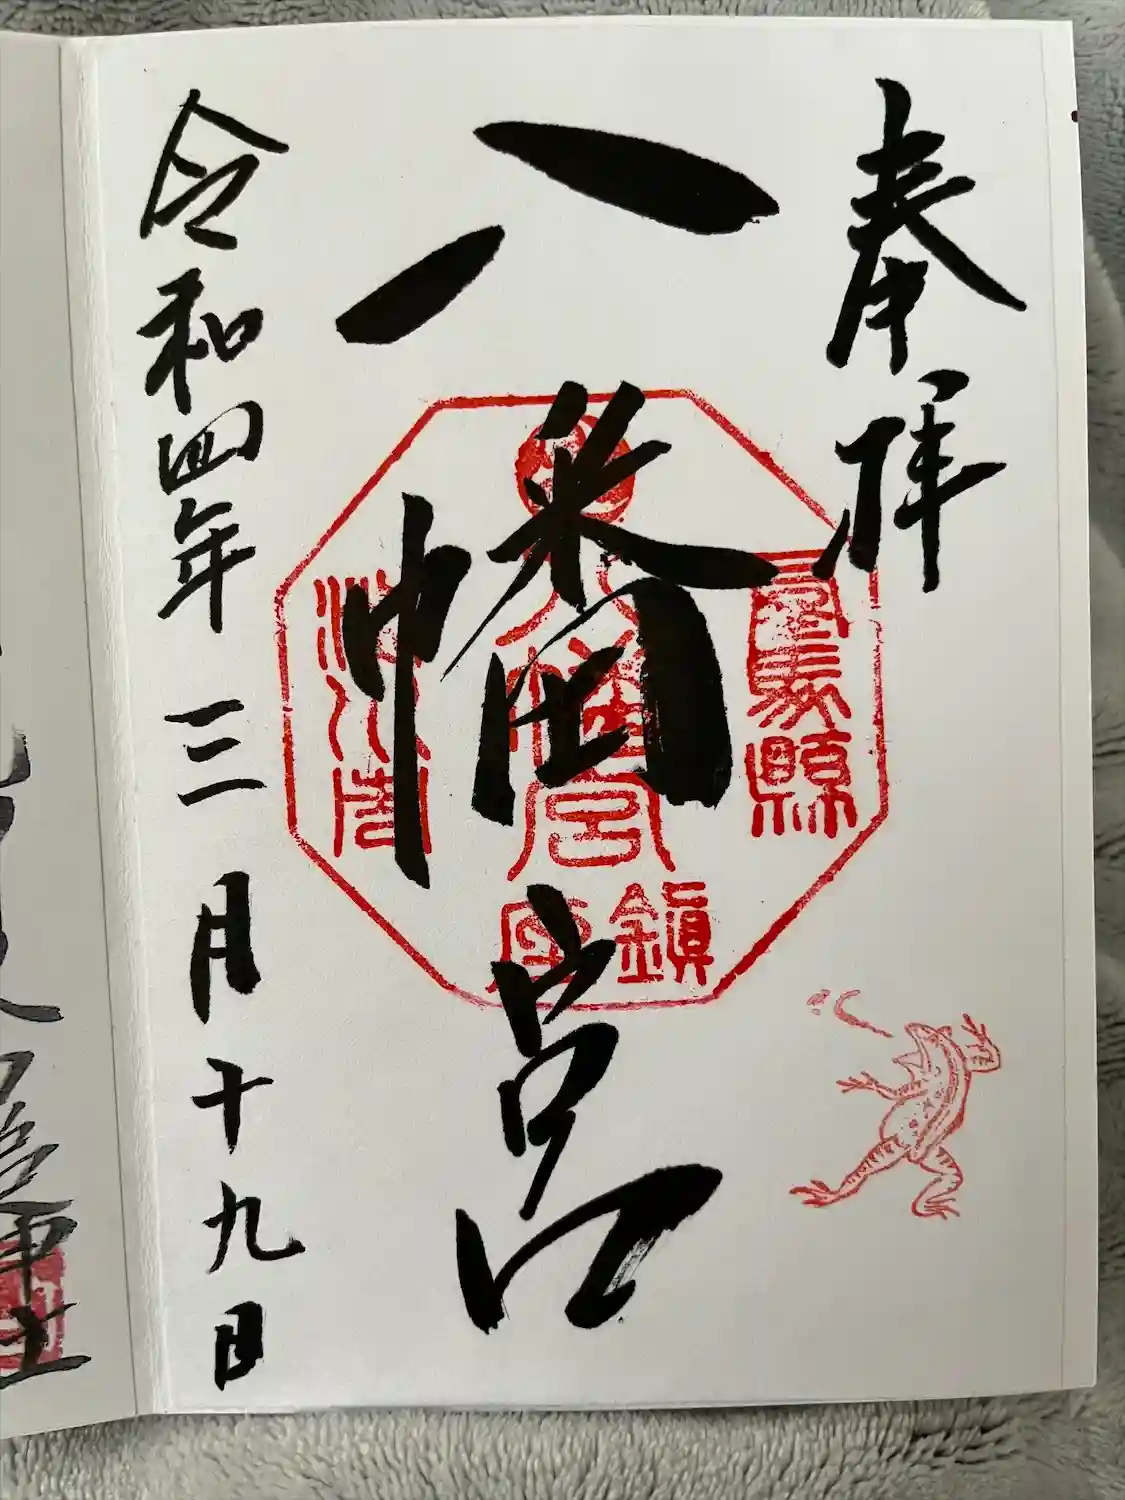 奉拝
八幡宮
令和四年三月十九日
八幡宮
鎮座